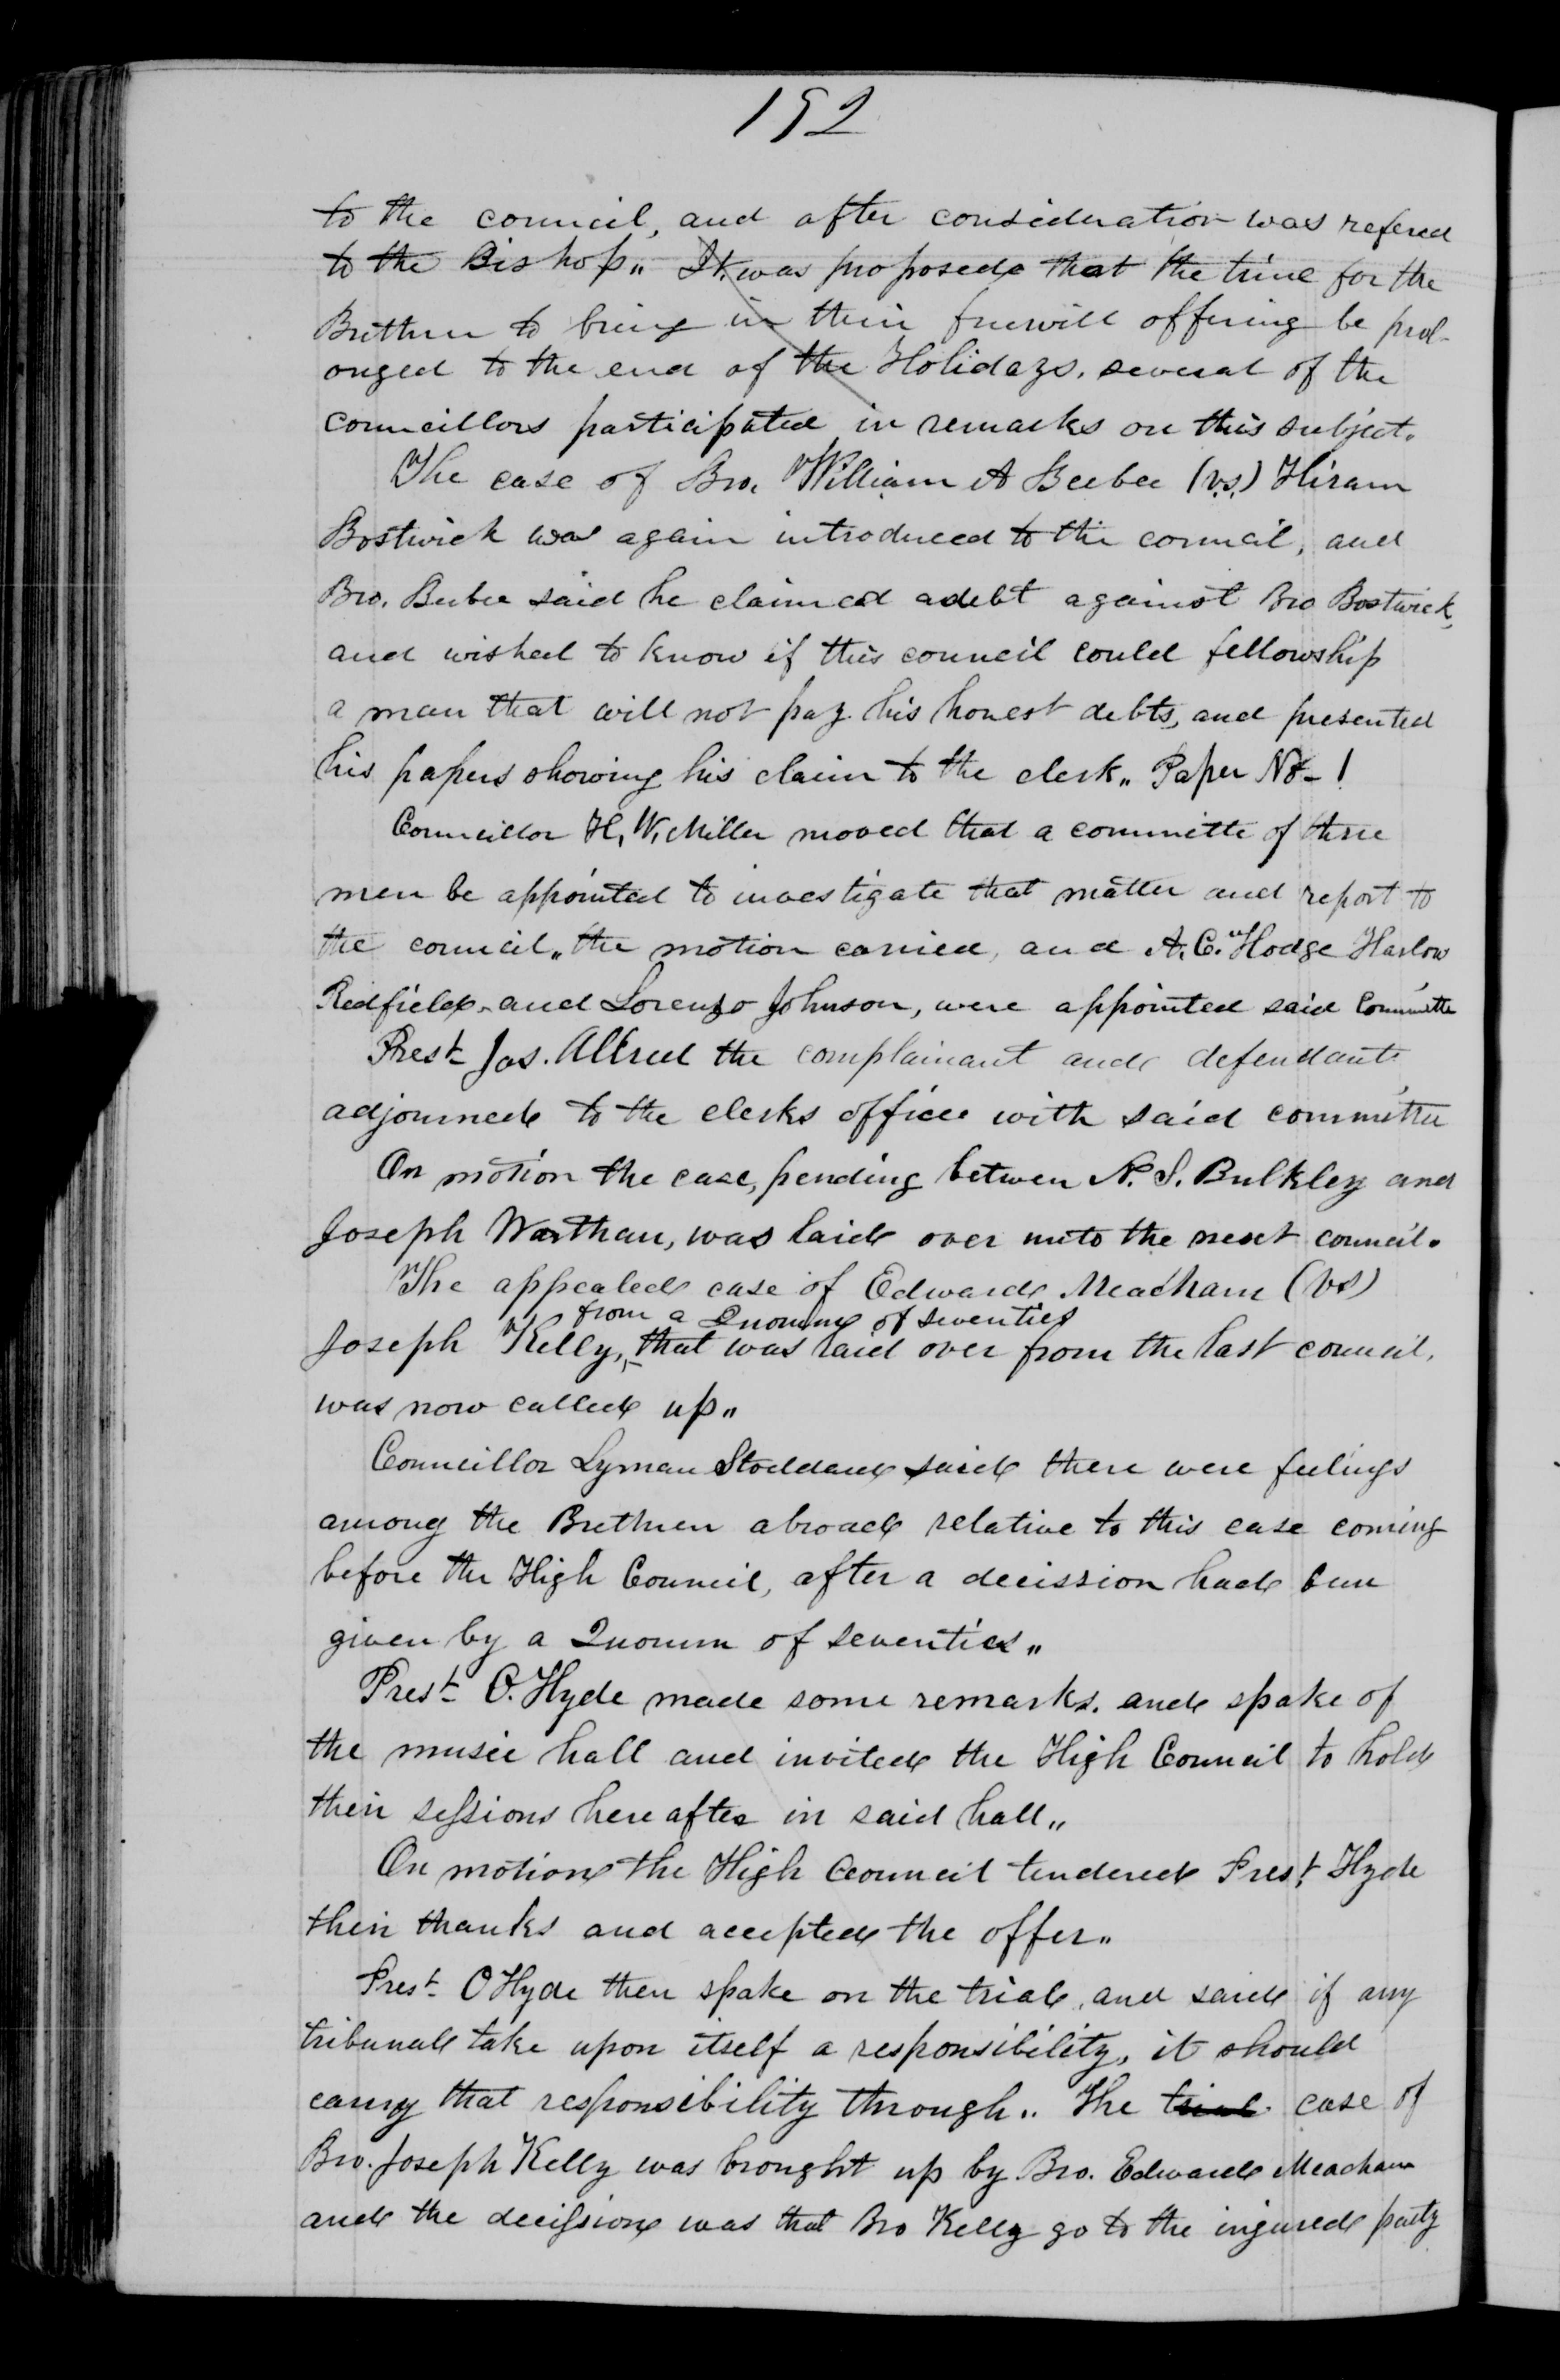 192
to the council, and after consideration was refered
to the Bishop„ It was proposed that the time for the
Brethren to bring in their freewill offering be prol-
onged to the end of the Holidays. several of the
councillors participated in remarks on this subject.
The case of Bro. William A Beebee (vs.) Hiram
Bostwick was again introduced to the council, and
Bro. Beebee said he claimed a debt against Bro Bostwick,
and wished to know if this council could fellowship
a man that will not pay his honest debts, and presented
his papers showing his claim to the clerk„ Paper No- 1
Councillor H, W, Miller moved that a committe of three
men be appointed to investigate that matter and report to
the council„ the motion carried, and A. C. Hodge Harlow
Redfield, and Lorenzo Johnson, were appointed said Committe
Prest Jas. Allred the complainant and defendant
adjourned to the clerks office with said committee
On motion the case, pending betwen N. S. Bulkley and
Joseph Warthan, was laid over unto the next council.
The appealed case of Edward Meacham (vs)
from a Quorum of seventies
Joseph Kelly, that was laid over from the last council,
was now called up„
Councillor Lyman Stoddard said there were feelings
among the Brethren abroad relative to this case coming
before the High Council, after a decission had been
given by a Quorum of seventies„
Prest O. Hyde made some remarks. and spake of
the music hall and invited the High Council to hold
their sessions hereafter in said hall„
On motion the High Council tendered Prest Hyde
their thanks and accepted the offer„
Prest O Hyde then spake on the trial, and said if any
tribunal take upon itself a responsibility, it should
carry that responsibility through.. The trial case of
Bro. Joseph Kelly was brought up by Bro. Edward Meacham
and the decission was that Bro Kelly go to the injured party